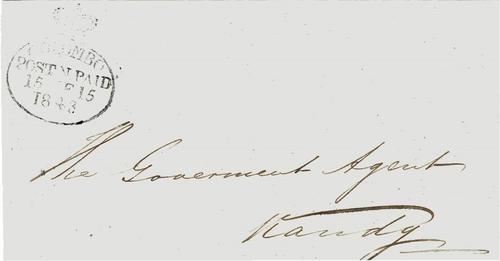 COLOMBO
POST PAID
15 15
1843
The Goverment Agent
Kandy